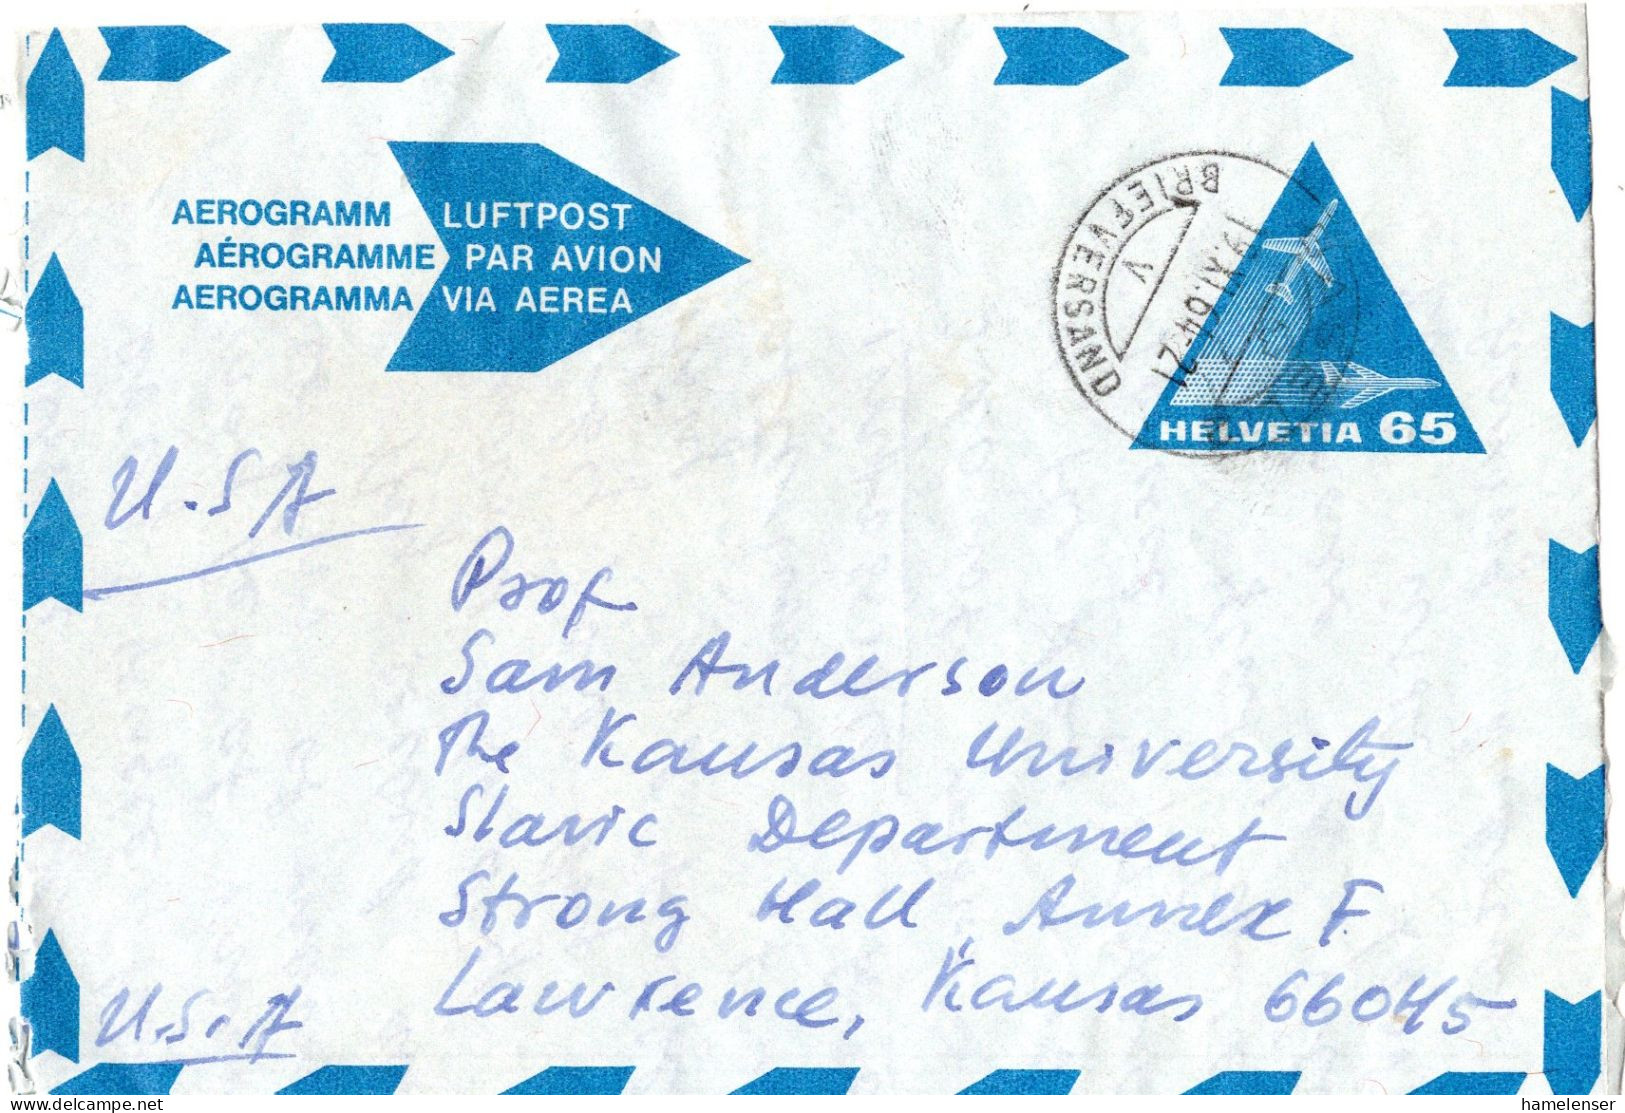 AEROGRAMM LUFTPOST
AÉROGRAMME PAR AVION
AEROGRAMMA VIA AEREA
BRIEFVERSAND
V
HELVETIA 65
U.SA
Prof
Sam Anderson
The Kansas University
Slavic Department
Strong Hall, Annex F.
Lawrence, Kansas 66045
U.S.A
www.delcampe.net
hamelenser